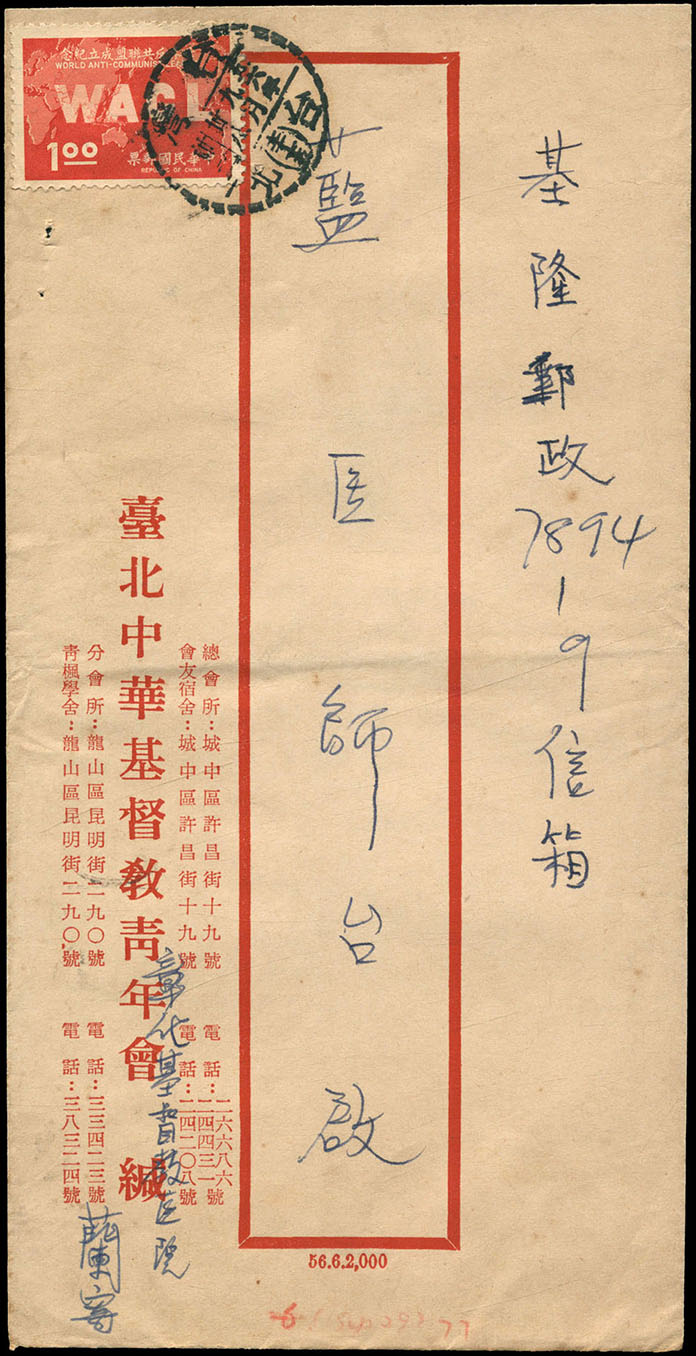 基隆郵政7894-9信箱
藍医師台啟
念紀立成盟聯共反
WORLD ANTI-COMMUNIST LE
WACL
1.00
票郵國民華中
REPUBLIC OF CHINA
台北
總會所：城中區許昌街十九號 電話：二六六八六 二四四三一
會友宿舍：城中區許昌街十九號 電話：二四二〇八號
臺北中華基督教青年會 緘
分會所：龍山區昆明街二九〇號 電話：三三四二三號
靑楓學舍：龍山區昆明街二九〇號 電話：三八三二四號
彰化基督教医院
蘭寄
56.6.2,000